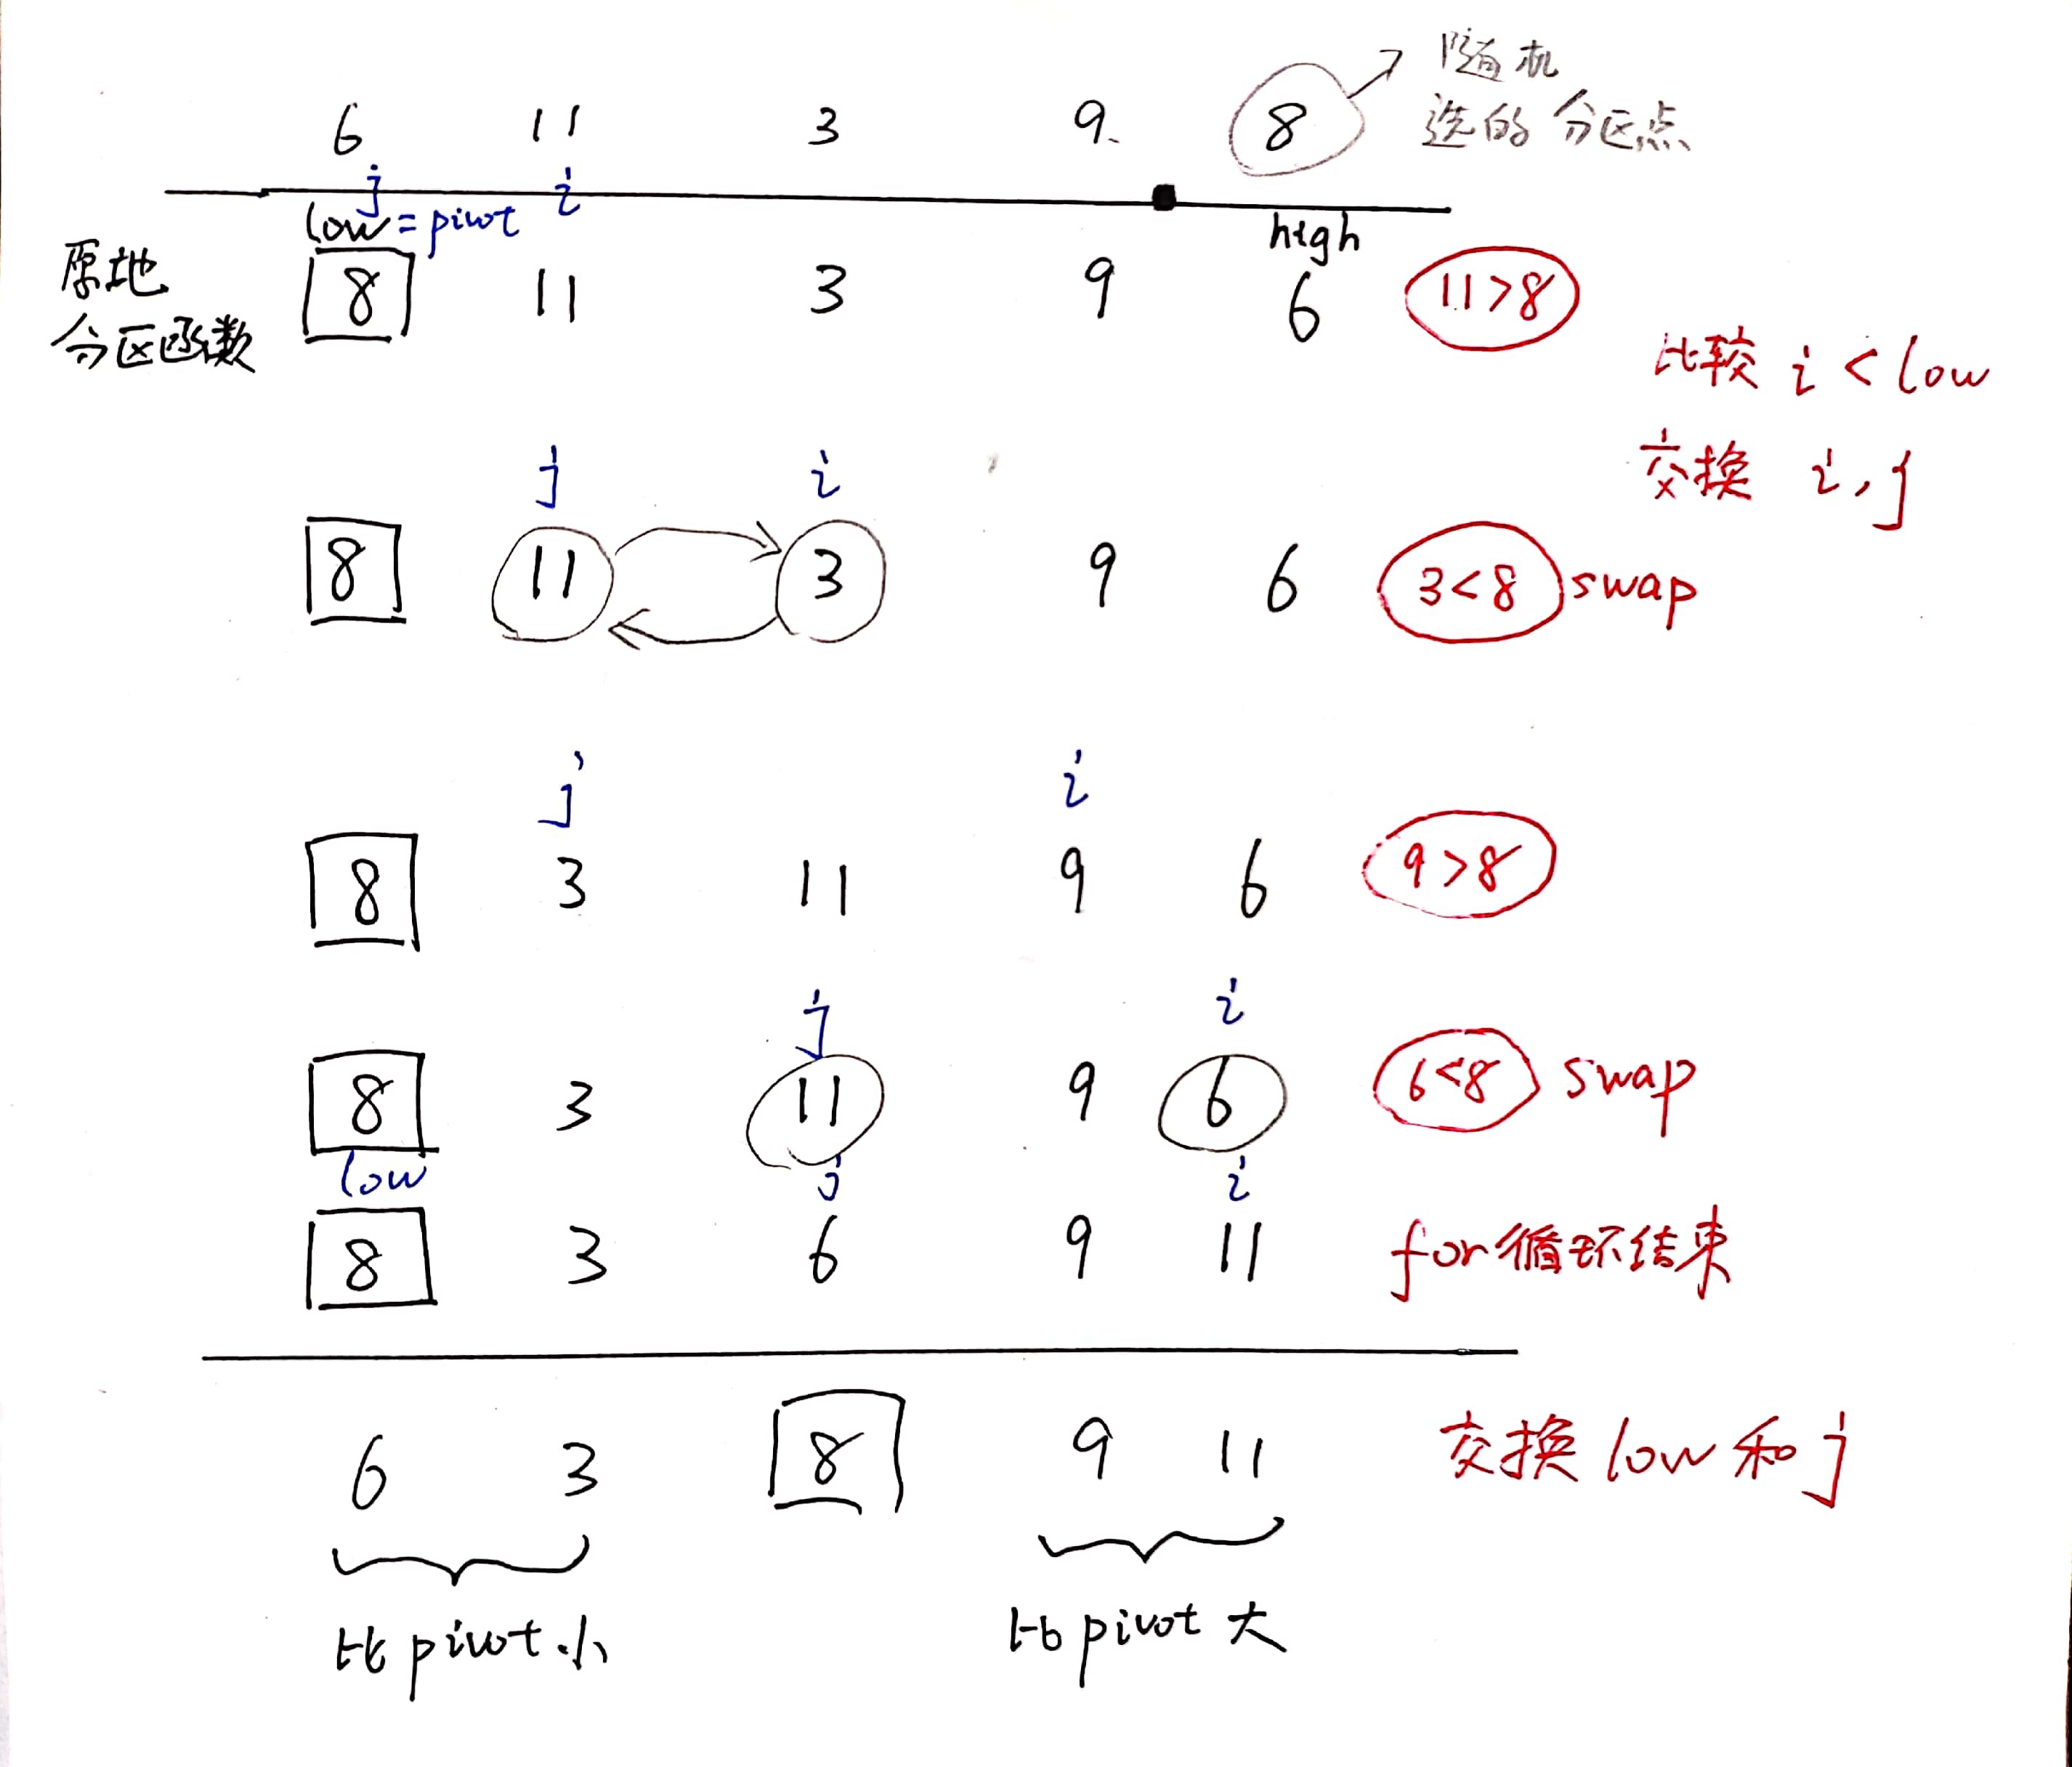 随机
6 11 3 9 8 选的分区点
j i
low=pivot high
原地 8 11 3 9 6 11>8
分区函数
比较 i < low
交换 i,j
j i
8 11 3 9 6 3<8 swap
j i
8 3 11 9 6 9>8
j i
8 3 11 9 6 6<8 swap
low j i
8 3 6 9 11 for循环结束
6 3 8 9 11 交换 low 和 j
比 pivot 小 比 pivot 大